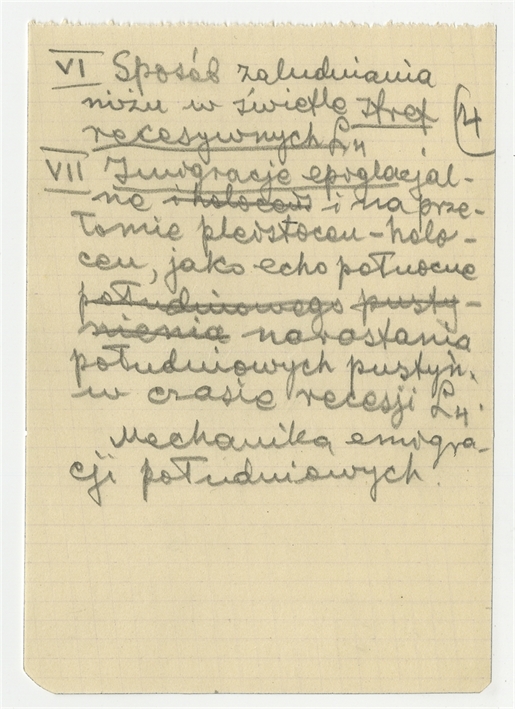 VI Sposób zaludniania
niżu w świetle stref
recesywnych Ł4
4
VII Imigracje epiglacjal-
ne i holoceń i na prze-
łomie pleistocen-holo-
cen, jako echo północne
południowego pusty-
nienia narastania
południowych pustyń.
w czasie recesji Ł4.
Mechanika emigra-
cji południowych.